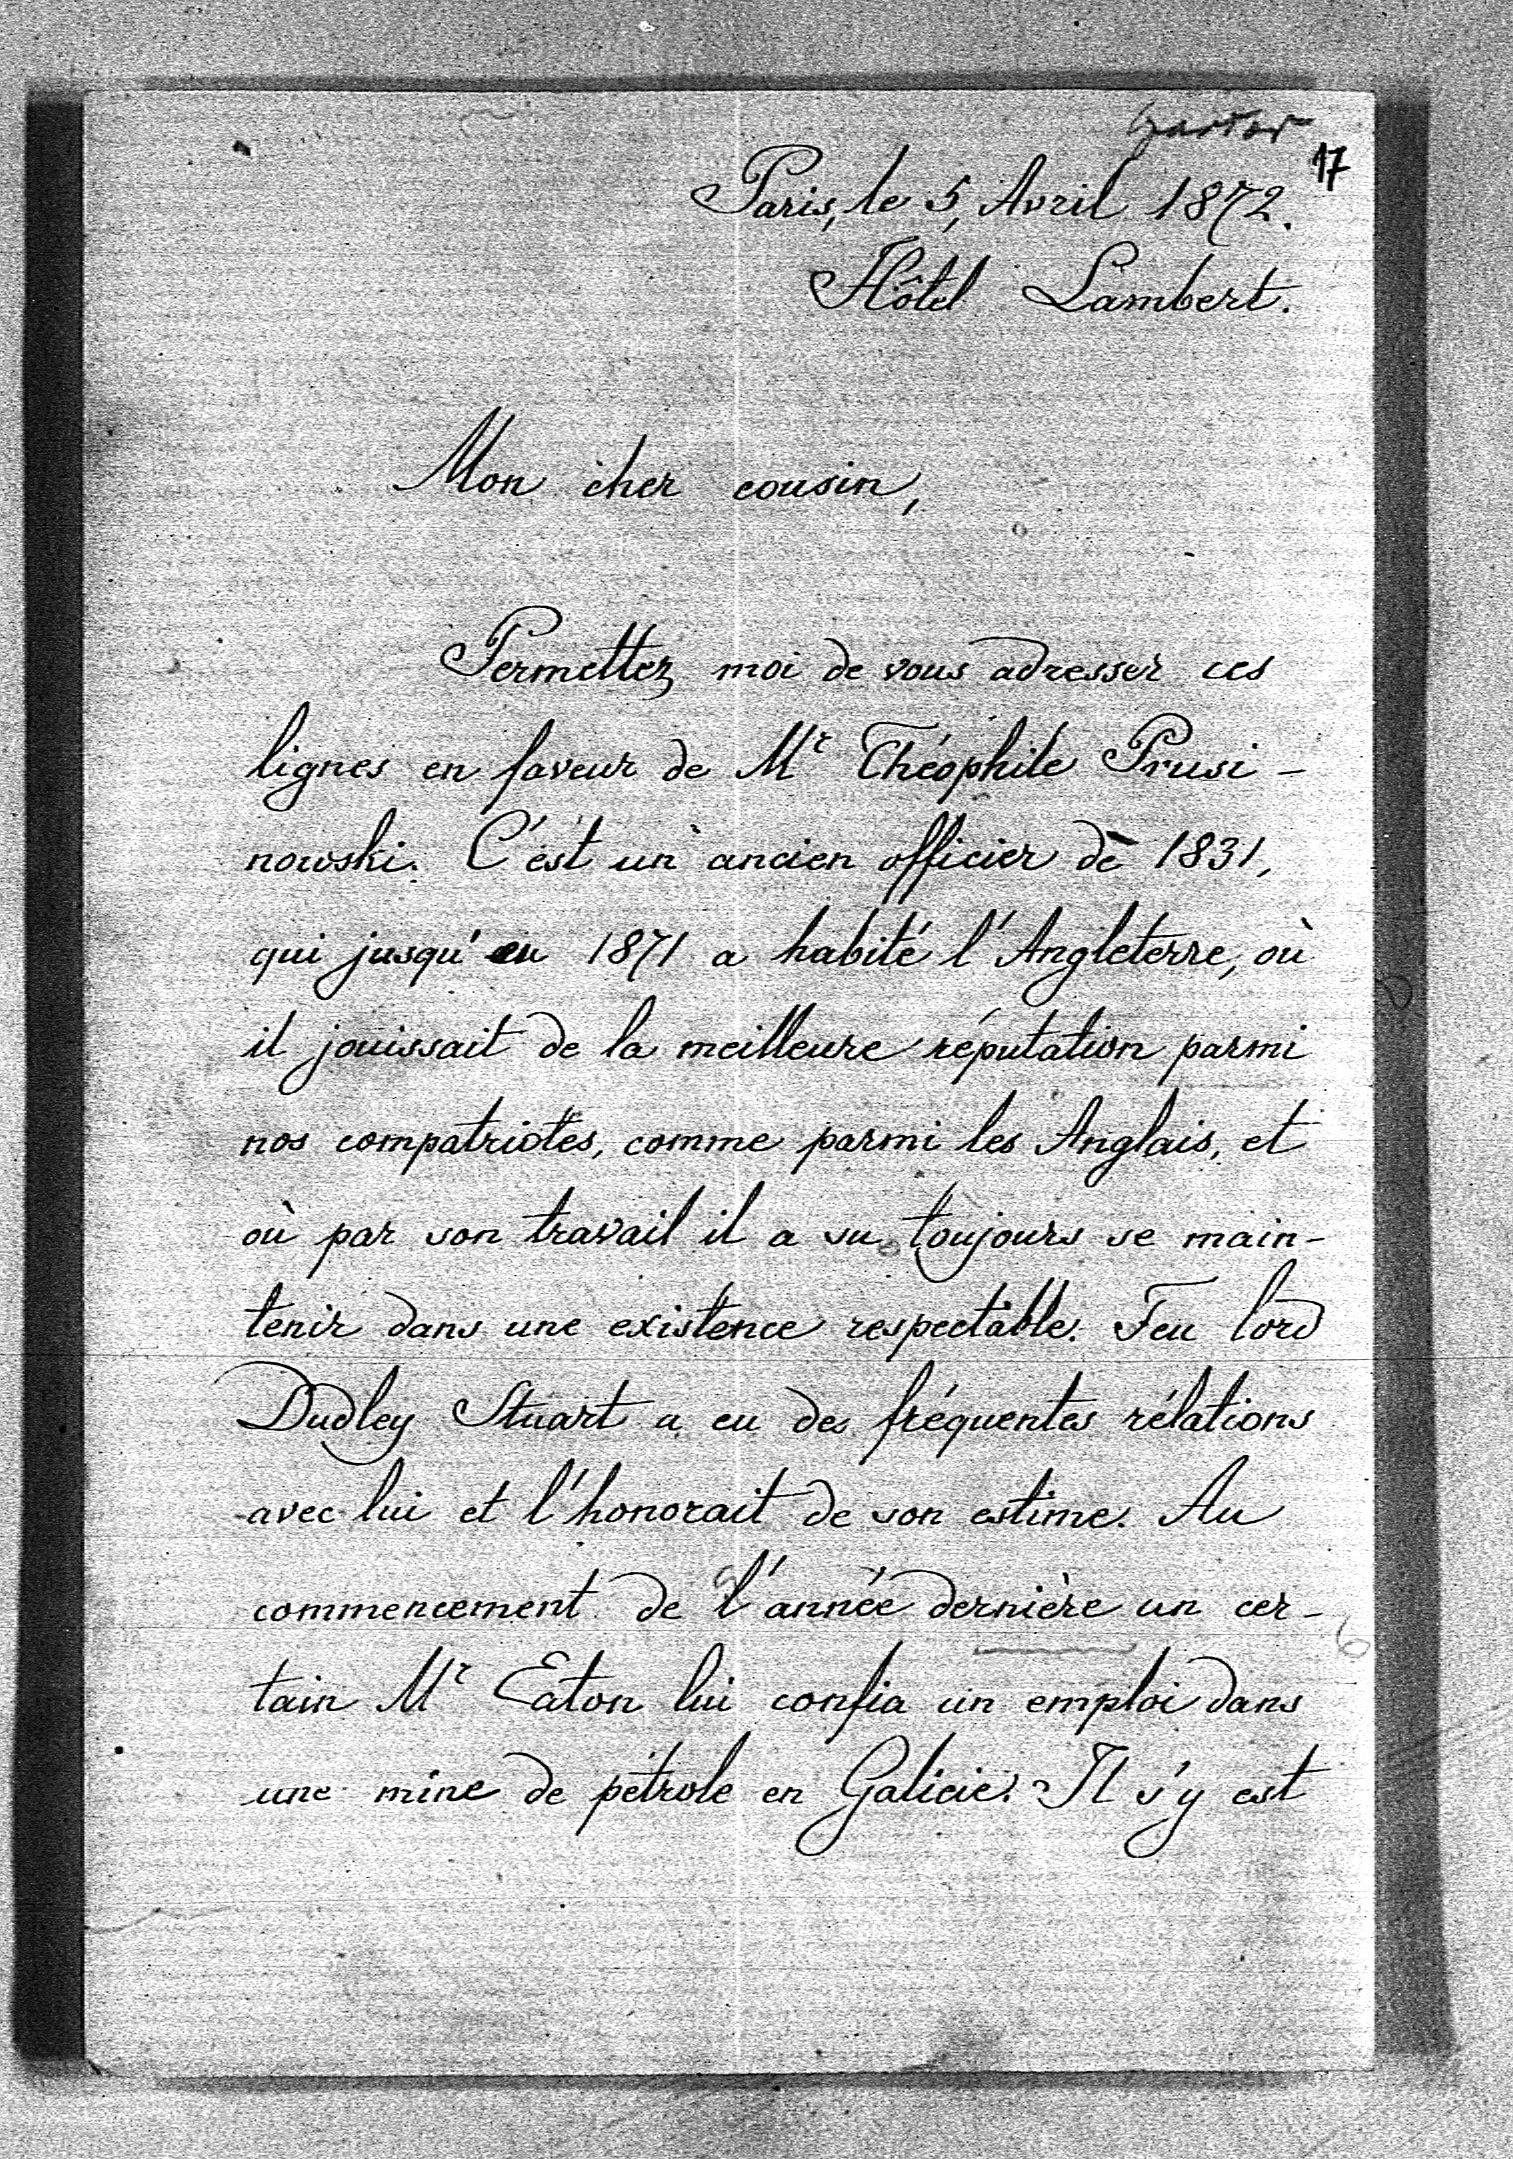 17
Paris, le 5, Avril 1872.
Hôtel Lambert.
Mon cher cousin,
Permettez moi de vous adresser ces
lignes en faveur de Mr Théophile Prusi-
nowski. C'est un ancien officier de 1831,
qui jusqu'en 1871 a habité l'Angleterre, où
il jouissait de la meilleure réputation parmi
nos compatriotes, comme parmi les Anglais, et
où par son travail il a su toujours se main-
tenir dans une existence respectable. Feu lord
Dudley Stuart a eu des fréquentes rélations
avec lui et l'honorait de son estime. Au
commencement de l'année dernière un cer-
tain Mr Eaton lui confia un emploi dans
une mine de pétrole en Galicie. Il s'y est